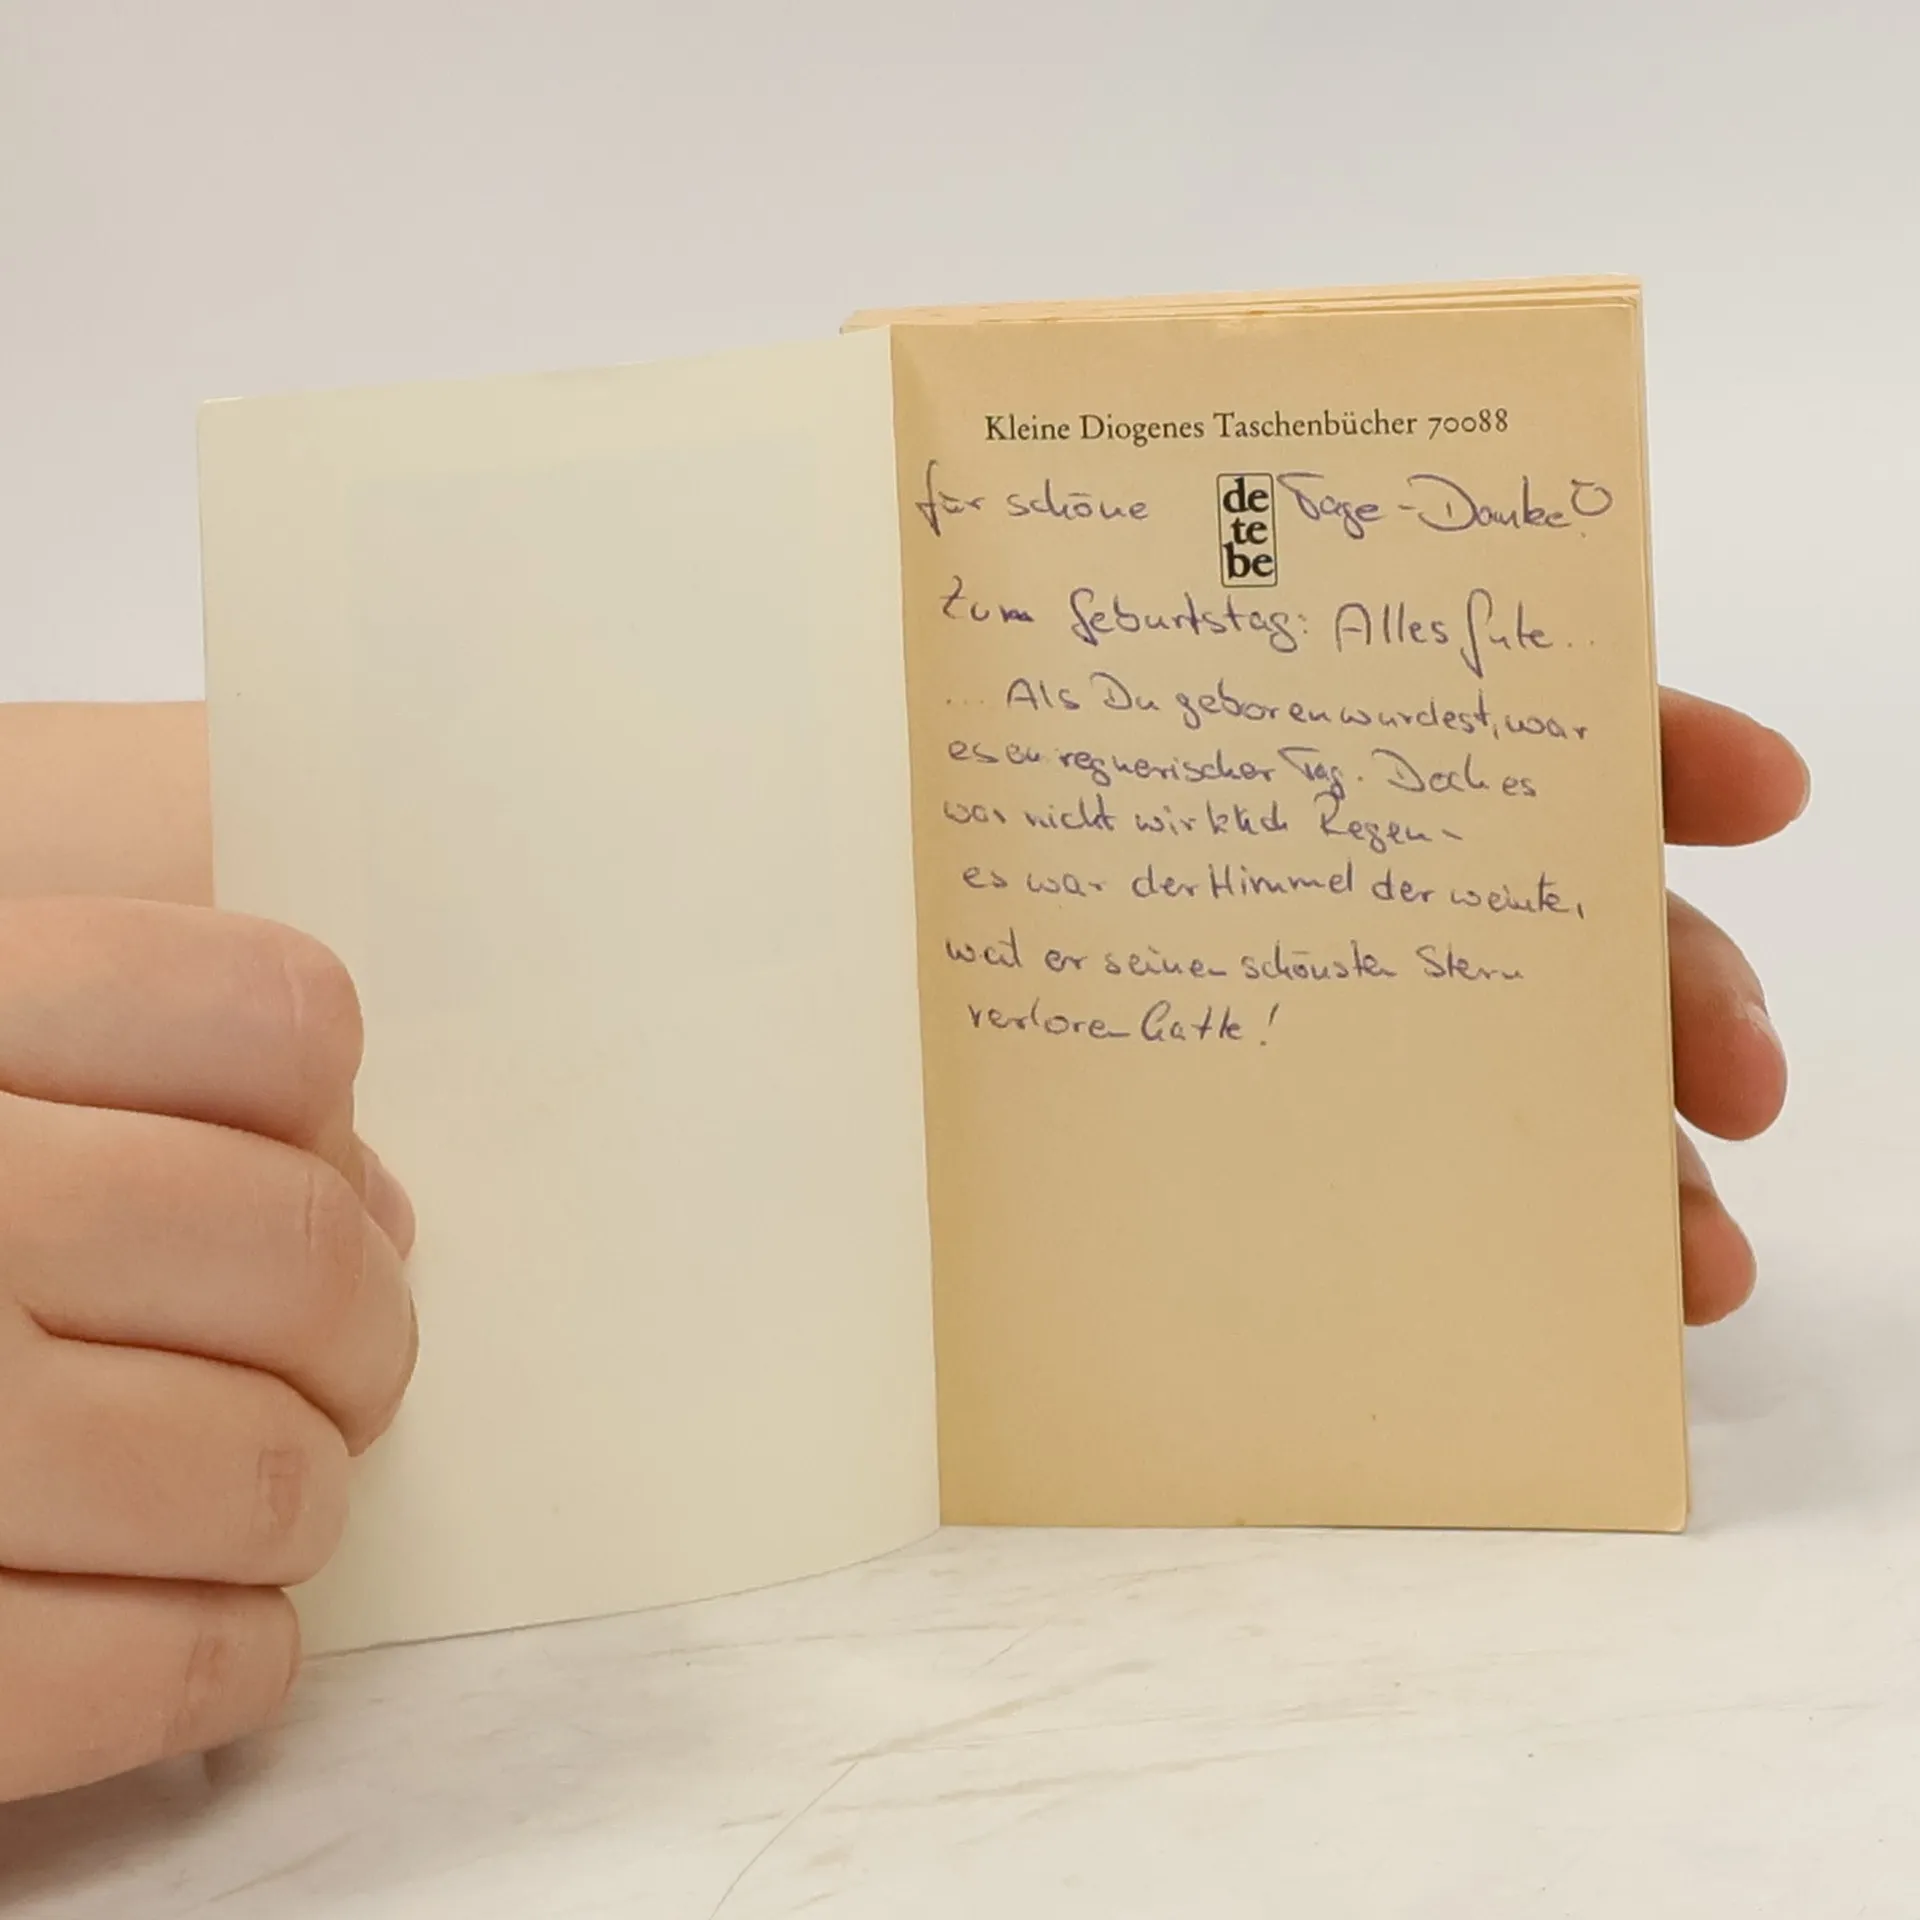 Kleine Diogenes Taschenbücher 70088
für schöne Tage - Danke!
de
te
be
Zum Geburtstag: Alles Gute..
... Als Du geboren wurdest, war
es ein regnerischer Tag. Doch es
war nicht wirklich Regen -
es war der Himmel der weinte,
weil er seinen schönsten Stern
verloren hatte!